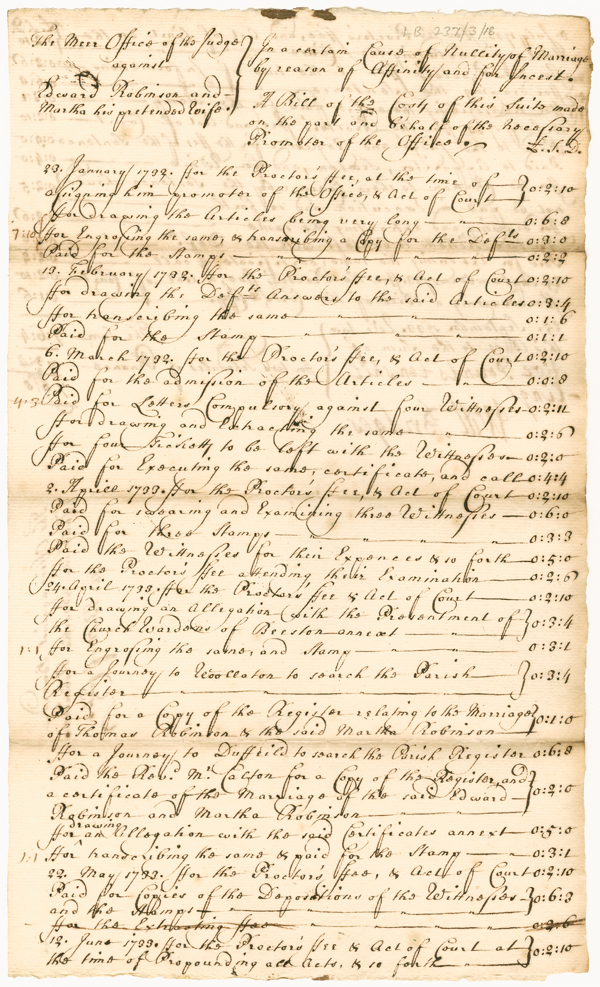 LB 237/3/16
The Meer Office of the Judge
against
Edward Robinson and
Martha his pretended Wife.
In a certain Cause of Nullity of Marriage
by reason of Affinity and for Incest.
A Bill of the Costs of this Suite made
on the part and behalf of the necessary
Promoter of the Office.
£. S. D.
23. January 1732. ffor the Proctor's ffee, at the time of
assigning him promoter of the Office, & Act of Court 0:2:10
ffor drawing the Articles being very long 0:6:8
7:10 ffor Engrossing the same, & transcribing a Copy for the Defts 0:3:0
Paid for the Stamps 0:2:2
13. February 1732. ffor the Proctor's ffee, & Act of Court 0:2:10
ffor drawing the Defts Answers to the said Articles 0:3:4
ffor transcribing the same 0:1:6
Paid for the Stamp 0:1:1
6. March 1732. ffor the Proctor's ffee, & Act of Court 0:2:10
Paid for the admission of the Articles 0:0:8
4.5 Paid for Letters Compulsory against four Witnesses 0:2:11
ffor drawing and Extracting the same 0:2:6
ffor four Ticketts to be left with the Witnesses 0:2:0
Paid for Executing the same, certificate, and call 0:4:4
2. Aprill 1733. ffor the Proctor's ffee, & Act of Court 0:2:10
Paid for swearing and Examining three Witnesses 0:6:0
Paid for three Stamps 0:3:3
Paid the Witnesses for their Expences & so forth 0:5:0
ffor the Proctor's ffee attending their Examination 0:2:6
24. April 1733. ffor the Proctor's ffee & Act of Court 0:2:10
ffor drawing an Allegation with the Presentment of
the Church Wardens of Beeston annext 0:3:4
1:1 ffor Engrossing the same, and Stamp 0:3:1
ffor a Journey to Woollaton to search the Parish
Register 0:3:4
Paid for a Copy of the Register relating to the Marriage
of Thomas Robinson & the said Martha Robinson 0:1:0
ffor a Journey to Duffeild to search the Parish Register 0:6:8
Paid the Revd. Mr. Calton for a Copy of the Register, and
a certificate of the Marriage of the said Edward
Robinson and Martha Robinson 0:2:0
ffor drawing an Allegation with the said Certificates annext 0:5:0
1:1 ffor transcribing the same & paid for the Stamp 0:3:1
22. May 1733. ffor the Proctor's ffee, & Act of Court 0:2:10
Paid for Copies of the Depositions of the Witnesses
and the Stamps 0:6:3
ffor the Extracting ffee 0:2:6
12. June 1733. ffor the Proctor's ffee & Act of Court at
the time of Propounding all Acts, & so forth 0:2:10